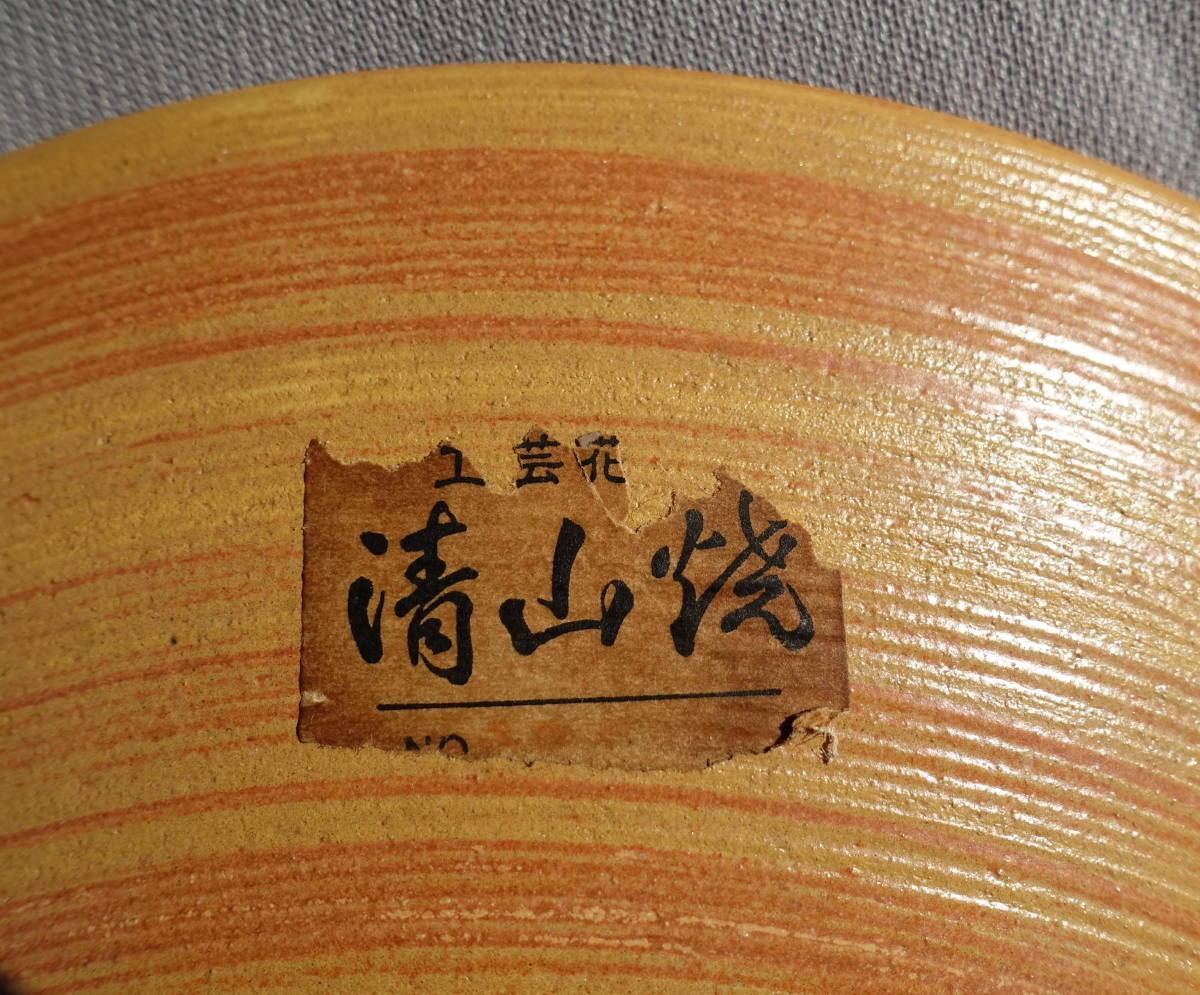 工芸花
清山焼
NO